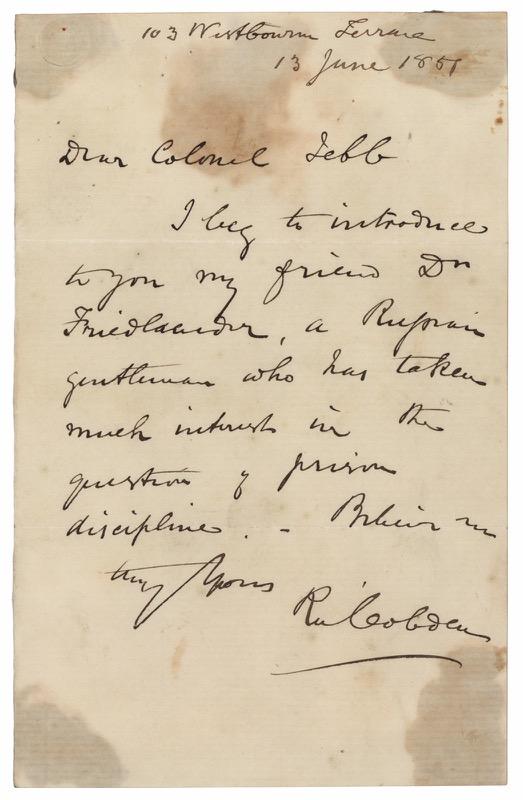 103 Westbourne Terrace
13 June 1851
Dear Colonel Jebb
I beg to introduce
to you my friend Dr
Friedlaender, a Russian
gentleman who has taken
much interest in the
question of prison
discipline. – Believe me
truly Yours
Rd Cobden